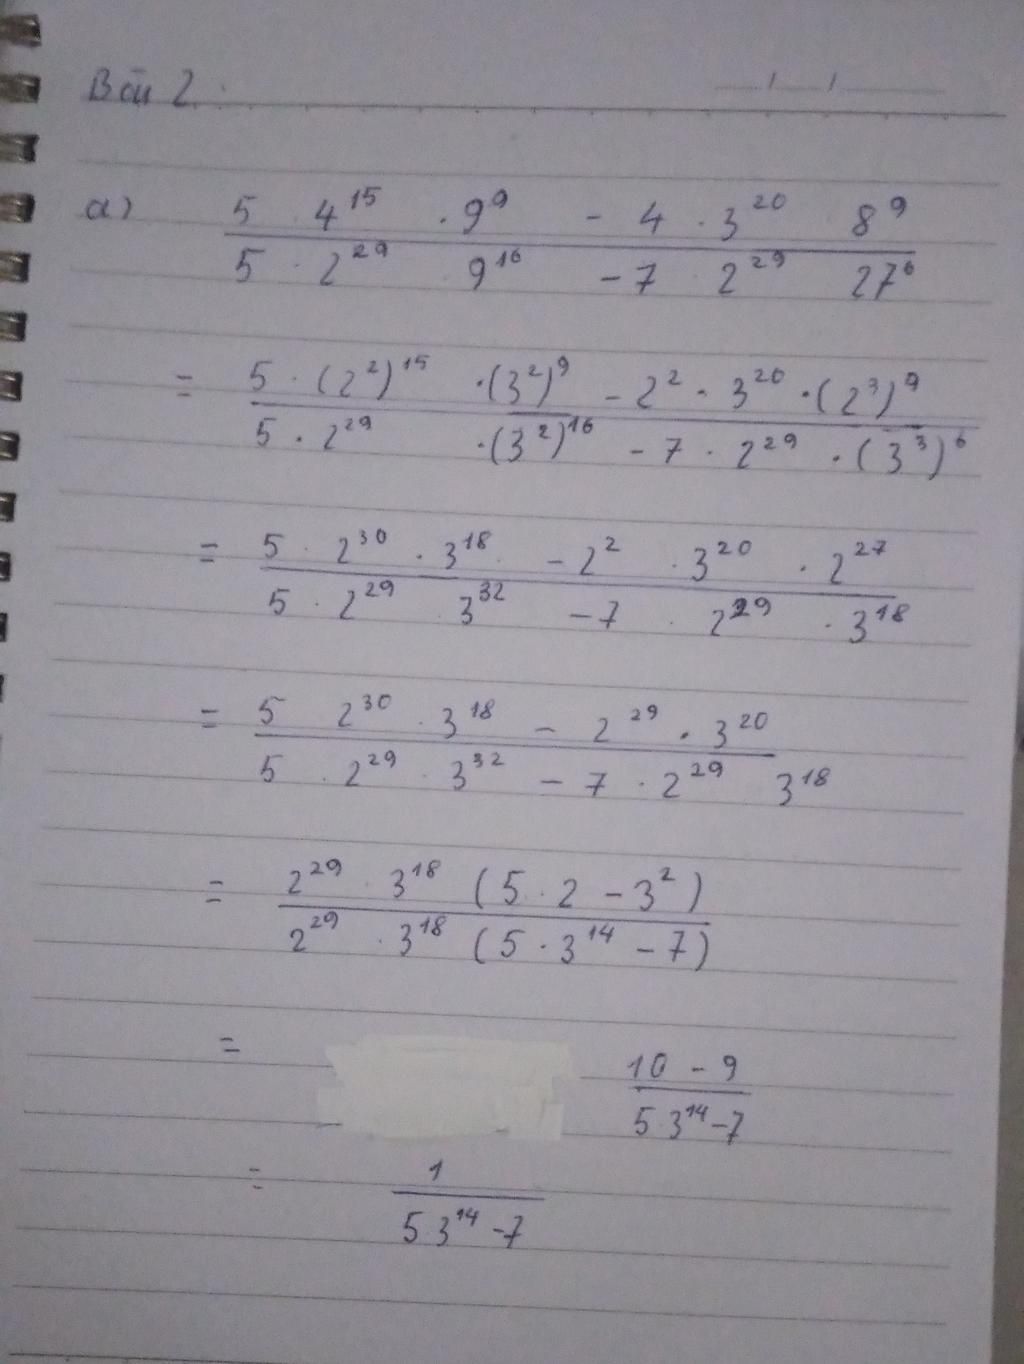 Bài 2.
a) \frac{5 . 4^{15} . 9^{9} - 4 . 3^{20} 8^{9}}{5 . 2^{29} . 9^{16} - 7 . 2^{29} 27^{6}}
= \frac{5 . (2^{2})^{15} . (3^{2})^{9} - 2^{2} . 3^{20} . (2^{3})^{9}}{5 . 2^{29} . (3^{2})^{16} - 7 . 2^{29} . (3^{3})^{6}}
= \frac{5 . 2^{30} . 3^{18} - 2^{2} . 3^{20} . 2^{27}}{5 . 2^{29} 3^{32} - 7 . 2^{29} . 3^{18}}
= \frac{5 2^{30} . 3^{18} - 2^{29} . 3^{20}}{5 . 2^{29} . 3^{32} - 7 . 2^{29} 3^{18}}
= \frac{2^{29} . 3^{18} (5 . 2 - 3^{2})}{2^{29} . 3^{18} (5 . 3^{14} - 7)}
= \frac{10 - 9}{5 . 3^{14} - 7}
= \frac{1}{5 . 3^{14} - 7}